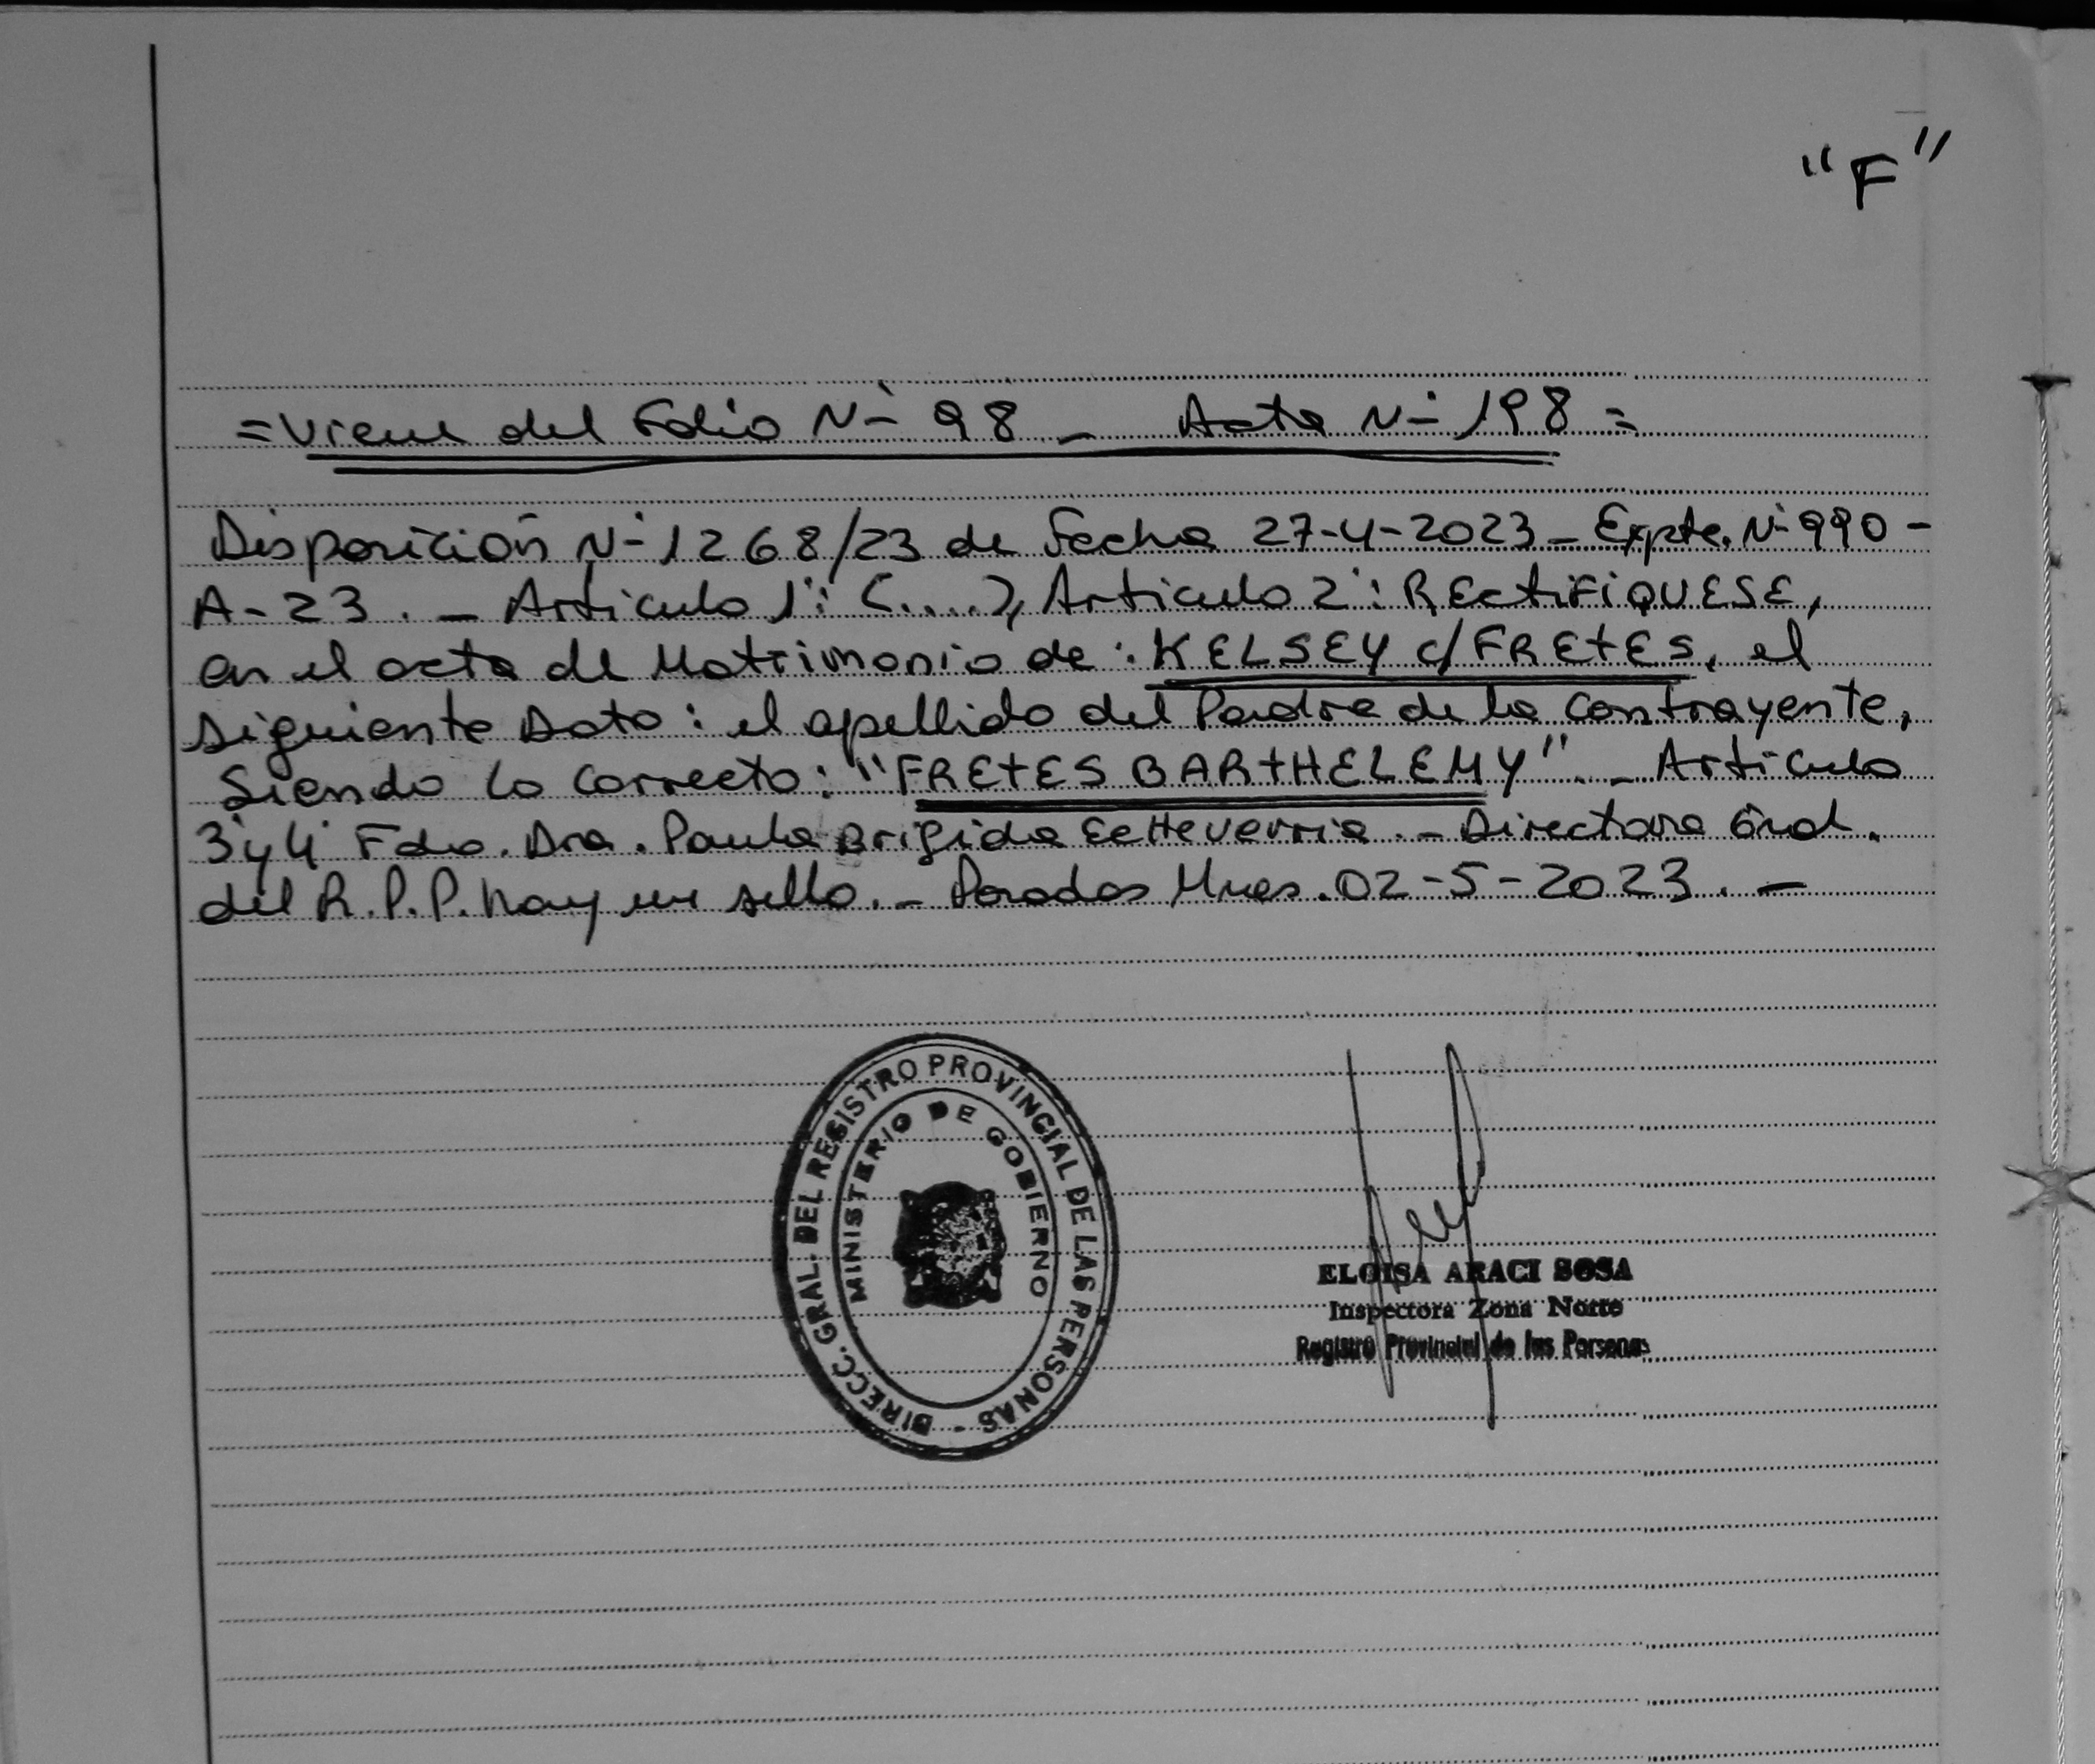 "F"
=Viene del Folio N° 98 _ Acta N° 198=
Disposición N° 1268/23 de Fecha 27-4-2023_ Expte. N° 990-
A-23._ Articulo 1°: (....), Articulo 2°: REctiFiQUESE,
en el acta de Matrimonio de: KELSEY c/ FREtES, el
siguiente Dato: el apellido del Padre de la contrayente,
Siendo lo correcto: "FREtES BARtHELEMY"._ Articulo
3° y 4° Fdo. Dra. Paula Brigida Echeverria._ Directora Gral.
del R.P.P. hay un sello._ Posadas Mnes. 02-5-2023._
DIRECC. GRAL. DEL REGISTRO PROVINCIAL DE LAS PERSONAS -
MINISTERIO DE GOBIERNO
ELOISA ARACI SOSA
Inspectora Zona Norte
Registro Provincial de las Personas